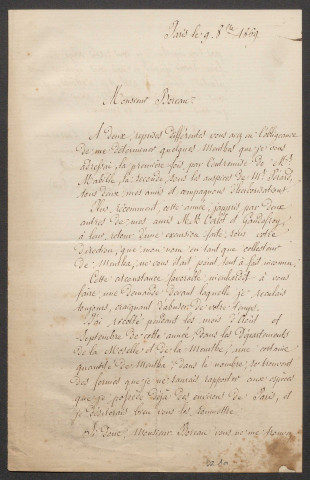 Paris le 9 8bre 1869
Monsieur Boreau
A deux reprises différentes vous avez eu l'obligeance
de me déterminer quelques Menthes que je vous
adressai, la première fois par l'entremise de Mr
Mabille, la seconde, sous les auspices de Mr
tous deux mes amis et compagnons d'herborisations.
Plus récemment, cette année, j'appris par deux
autres de mes amis MM. et
à leur retour d'une excursion faite sous votre
direction, que mon nom en tant que collecteur
de Mentha, ne vous était point tout à fait inconnu.
Cette circonstance favorable m'enhardit à vous
faire une demande devant laquelle je reculais
toujours, craignant d'abuser de votre temps.
J'ai récolté pendant les mois d'Août et
Septembre de cette année, dans les Départements
de la Moselle et de la Meurthe, une certaine
quantité de Mentha; dans le nombre, se trouvent
des formes que je ne saurais rapporter aux espèces
que je possède déjà des environs de Paris, et
je désirerais bien vous les soumettre.
Si donc, Monsieur Boreau vous ne me trouvez